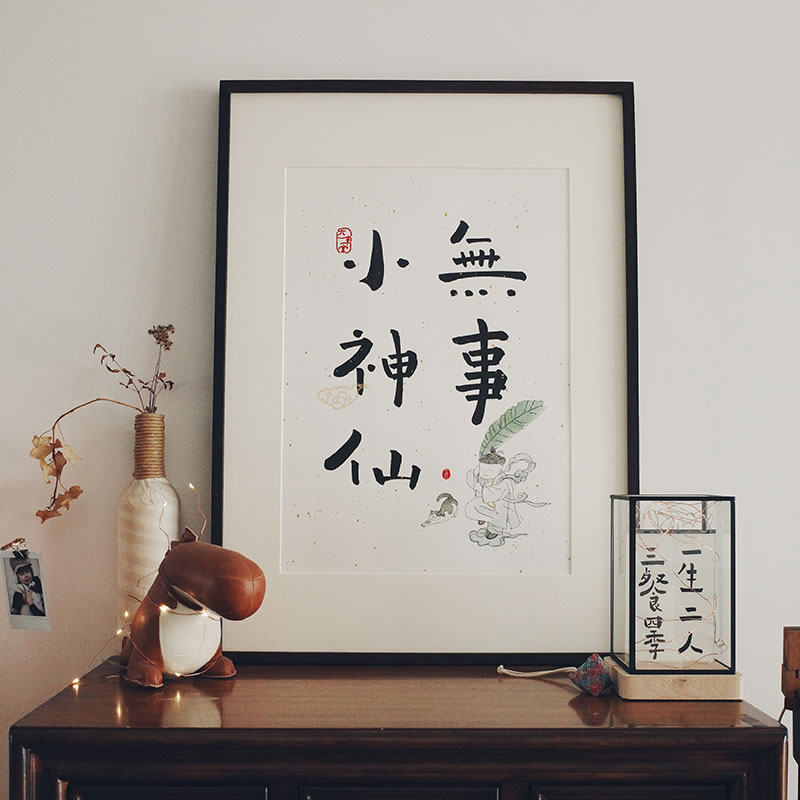 無事
小神仙
一生二人
三餐四季